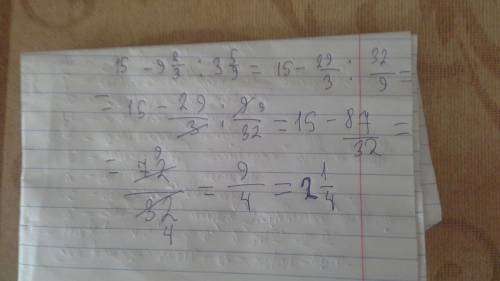 15 - 9 2/3 : 3 5/9 = 15 - 29/3 : 32/9 =
= 15 - 29/3 : 9/32 = 15 - 87/32 =
= 72/32 = 9/4 = 2 1/4